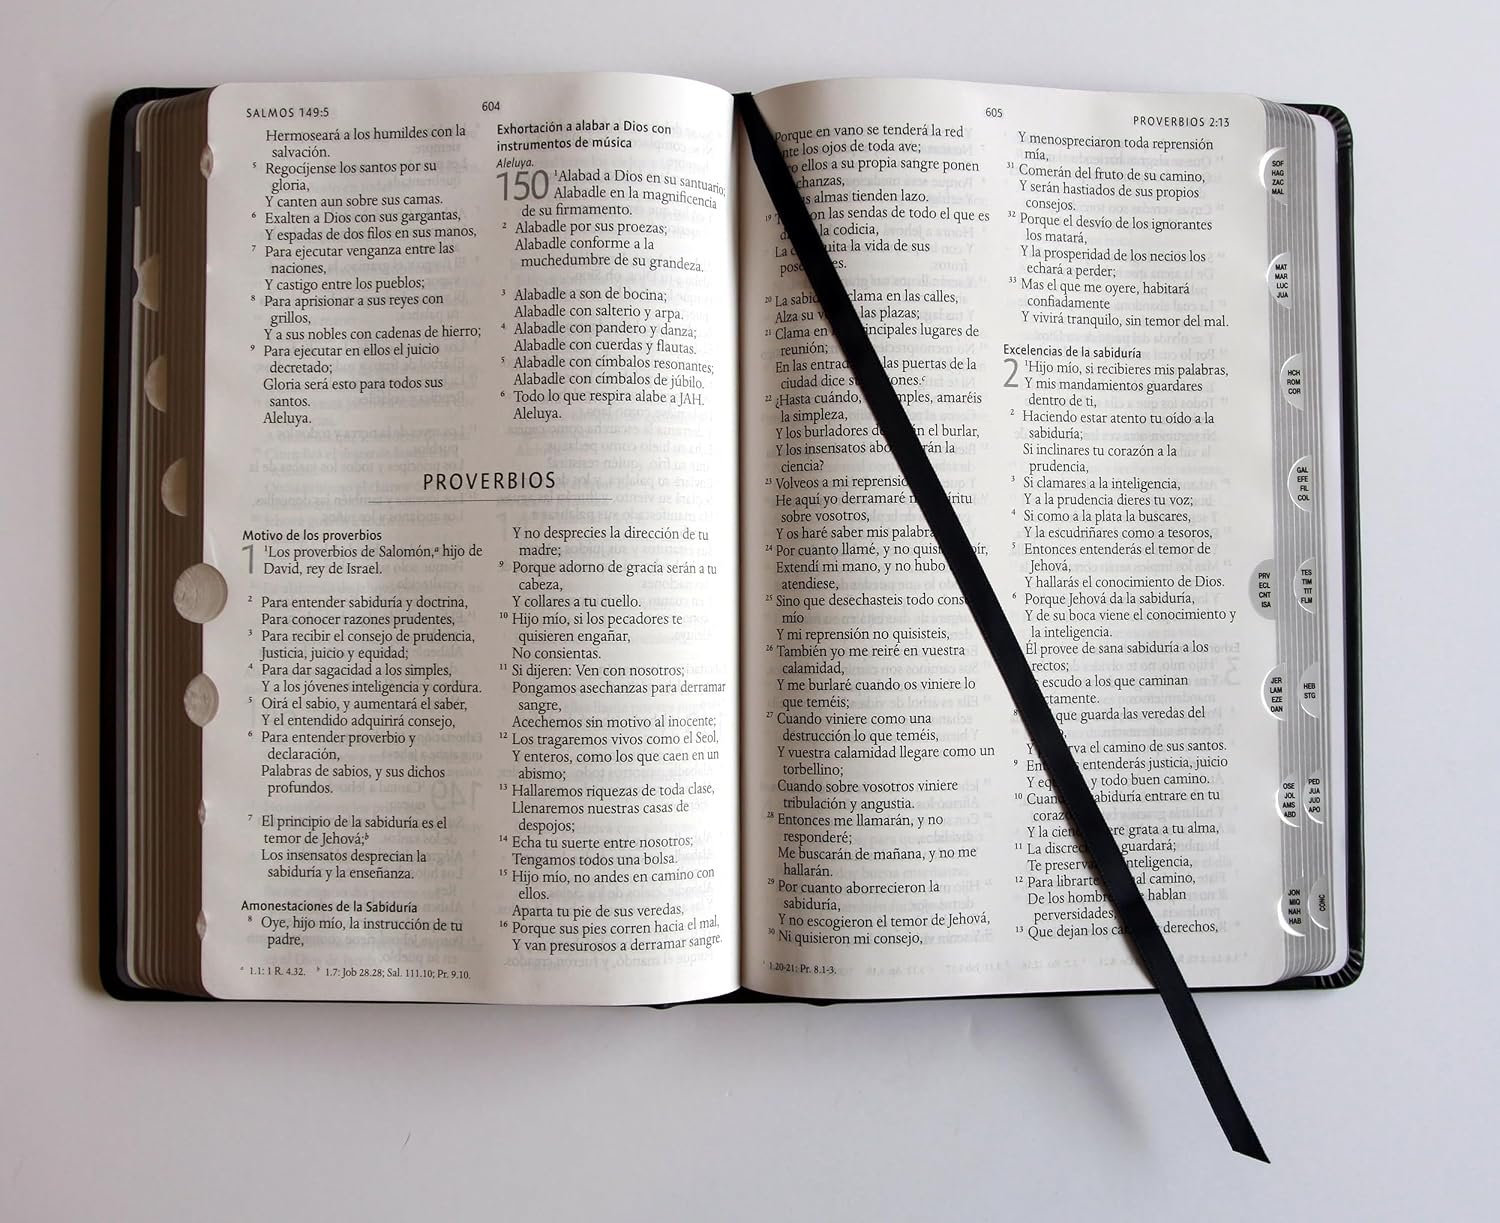 SALMOS 149:5
604
Hermoseará a los humildes con la
salvación.
5 Regocíjense los santos por su
gloria,
Y canten aun sobre sus camas.
6 Exalten a Dios con sus gargantas,
Y espadas de dos filos en sus manos,
7 Para ejecutar venganza entre las
naciones,
Y castigo entre los pueblos;
8 Para aprisionar a sus reyes con
grillos,
Y a sus nobles con cadenas de hierro;
9 Para ejecutar en ellos el juicio
decretado;
Gloria será esto para todos sus
santos.
Aleluya.
Exhortación a alabar a Dios con
instrumentos de música
Aleluya.
150 1Alabad a Dios en su santuario;
Alabadle en la magnificencia
de su firmamento.
2 Alabadle por sus proezas;
Alabadle conforme a la
muchedumbre de su grandeza.
3 Alabadle a son de bocina;
Alabadle con salterio y arpa.
4 Alabadle con pandero y danza;
Alabadle con cuerdas y flautas.
5 Alabadle con címbalos resonantes;
Alabadle con címbalos de júbilo.
6 Todo lo que respira alabe a JAH.
Aleluya.
PROVERBIOS
Motivo de los proverbios
1 1Los proverbios de Salomón,a hijo de
David, rey de Israel.
2 Para entender sabiduría y doctrina,
Para conocer razones prudentes,
3 Para recibir el consejo de prudencia,
Justicia, juicio y equidad;
4 Para dar sagacidad a los simples,
Y a los jóvenes inteligencia y cordura.
5 Oirá el sabio, y aumentará el saber,
Y el entendido adquirirá consejo,
6 Para entender proverbio y
declaración,
Palabras de sabios, y sus dichos
profundos.
7 El principio de la sabiduría es el
temor de Jehová;b
Los insensatos desprecian la
sabiduría y la enseñanza.
Amonestaciones de la Sabiduría
8 Oye, hijo mío, la instrucción de tu
padre,
Y no desprecies la dirección de tu
madre;
9 Porque adorno de gracia serán a tu
cabeza,
Y collares a tu cuello.
10 Hijo mío, si los pecadores te
quisieren engañar,
No consientas.
11 Si dijeren: Ven con nosotros;
Pongamos asechanzas para derramar
sangre,
Acechemos sin motivo al inocente;
12 Los tragaremos vivos como el Seol,
Y enteros, como los que caen en un
abismo;
13 Hallaremos riquezas de toda clase,
Llenaremos nuestras casas de
despojos;
14 Echa tu suerte entre nosotros;
Tengamos todos una bolsa.
15 Hijo mío, no andes en camino con
ellos.
Aparta tu pie de sus veredas,
16 Porque sus pies corren hacia el mal,
Y van presurosos a derramar sangre.
a 1.1: 1 R. 4.32. b 1.7: Job 28.28; Sal. 111.10; Pr. 9.10.
605
PROVERBIOS 2:13
Porque en vano se tenderá la red
los ojos de toda ave;
ellos a su propia sangre ponen
almas tienden lazo.
19 son las sendas de todo el que es
la codicia,
La la vida de sus
20 La clama en las calles,
Alza su las plazas;
21 Clama en lugares de
reunión;
En las las puertas de la
ciudad dice
22 ¿Hasta cuándo, amaréis
la simpleza,
Y los burladores el burlar,
Y los insensatos la
ciencia?
23 Volveos a mi
He aquí yo derramaré
sobre vosotros,
Y os haré saber mis
24 Por cuanto llamé, y no
Extendí mi mano, y no hubo
atendiese,
25 Sino que desechasteis todo
mío
Y mi reprensión no quisisteis,
26 También yo me reiré en vuestra
calamidad,
Y me burlaré cuando os viniere lo
que teméis;
27 Cuando viniere como una
destrucción lo que teméis,
Y vuestra calamidad llegare como un
torbellino;
Cuando sobre vosotros viniere
tribulación y angustia.
28 Entonces me llamarán, y no
responderé;
Me buscarán de mañana, y no me
hallarán.
29 Por cuanto aborrecieron la
sabiduría,
Y no escogieron el temor de Jehová,
30 Ni quisieron mi consejo,
c 1.20-21: Pr. 8.1-3.
Y menospreciaron toda reprensión
mía,
31 Comerán del fruto de su camino,
Y serán hastiados de sus propios
consejos.
32 Porque el desvío de los ignorantes
los matará,
Y la prosperidad de los necios los
echará a perder;
33 Mas el que me oyere, habitará
confiadamente
Y vivirá tranquilo, sin temor del mal.
Excelencias de la sabiduría
2 1Hijo mío, si recibieres mis palabras,
Y mis mandamientos guardares
dentro de ti,
2 Haciendo estar atento tu oído a la
sabiduría;
Si inclinares tu corazón a la
prudencia,
3 Si clamares a la inteligencia,
Y a la prudencia dieres tu voz;
4 Si como a la plata la buscares,
Y la escudriñares como a tesoros,
5 Entonces entenderás el temor de
Jehová,
Y hallarás el conocimiento de Dios.
6 Porque Jehová da la sabiduría,
Y de su boca viene el conocimiento y
la inteligencia.
Él provee de sana sabiduría a los
rectos;
escudo a los que caminan
8 que guarda las veredas del
Y el camino de sus santos.
9 entenderás justicia, juicio
Y y todo buen camino.
10 sabiduría entrare en tu
Y la grata a tu alma,
11 La guardará;
Te inteligencia,
12 Para librarte mal camino,
De los hablan
perversidades,
13 Que dejan los derechos,
SOF
HAG
ZAC
MAL
MAT
MAR
LUC
JUA
HCH
ROM
COR
GAL
EFE
FIL
COL
PRV
ECL
CNT
ISA
TES
TIM
TIT
FLM
JER
LAM
EZE
DAN
HEB
STG
OSE
JOL
AMS
ABD
PED
JUA
JUD
APO
JON
MIQ
NAH
HAB
CONC